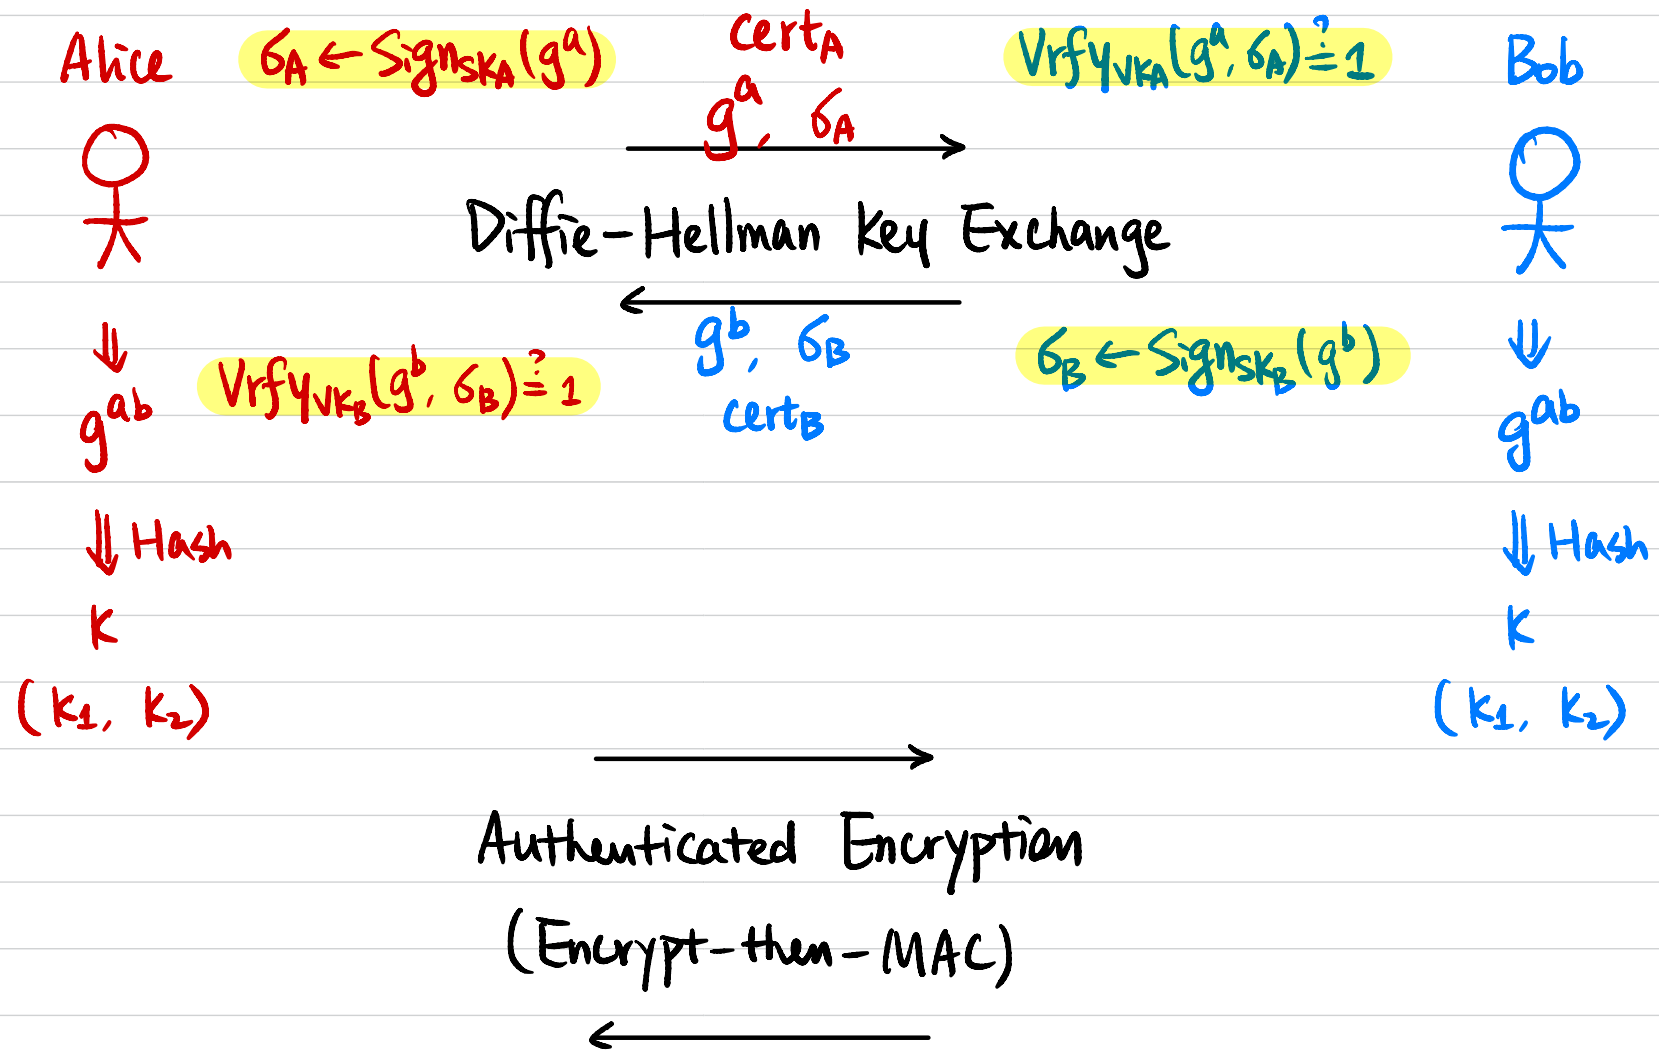 Alice σ_A ← Sign_{SK_A}(g^a) cert_A Vrfy_{VK_A}(g^a, σ_A) ≟ 1 Bob
g^a, σ_A
Diffie-Hellman Key Exchange
g^b, σ_B σ_B ← Sign_{SK_B}(g^b)
Vrfy_{VK_B}(g^b, σ_B) ≟ 1
g^{ab} cert_B g^{ab}
⇓ Hash ⇓ Hash
K K
(K_1, K_2) (K_1, K_2)
Authenticated Encryption
(Encrypt-then-MAC)